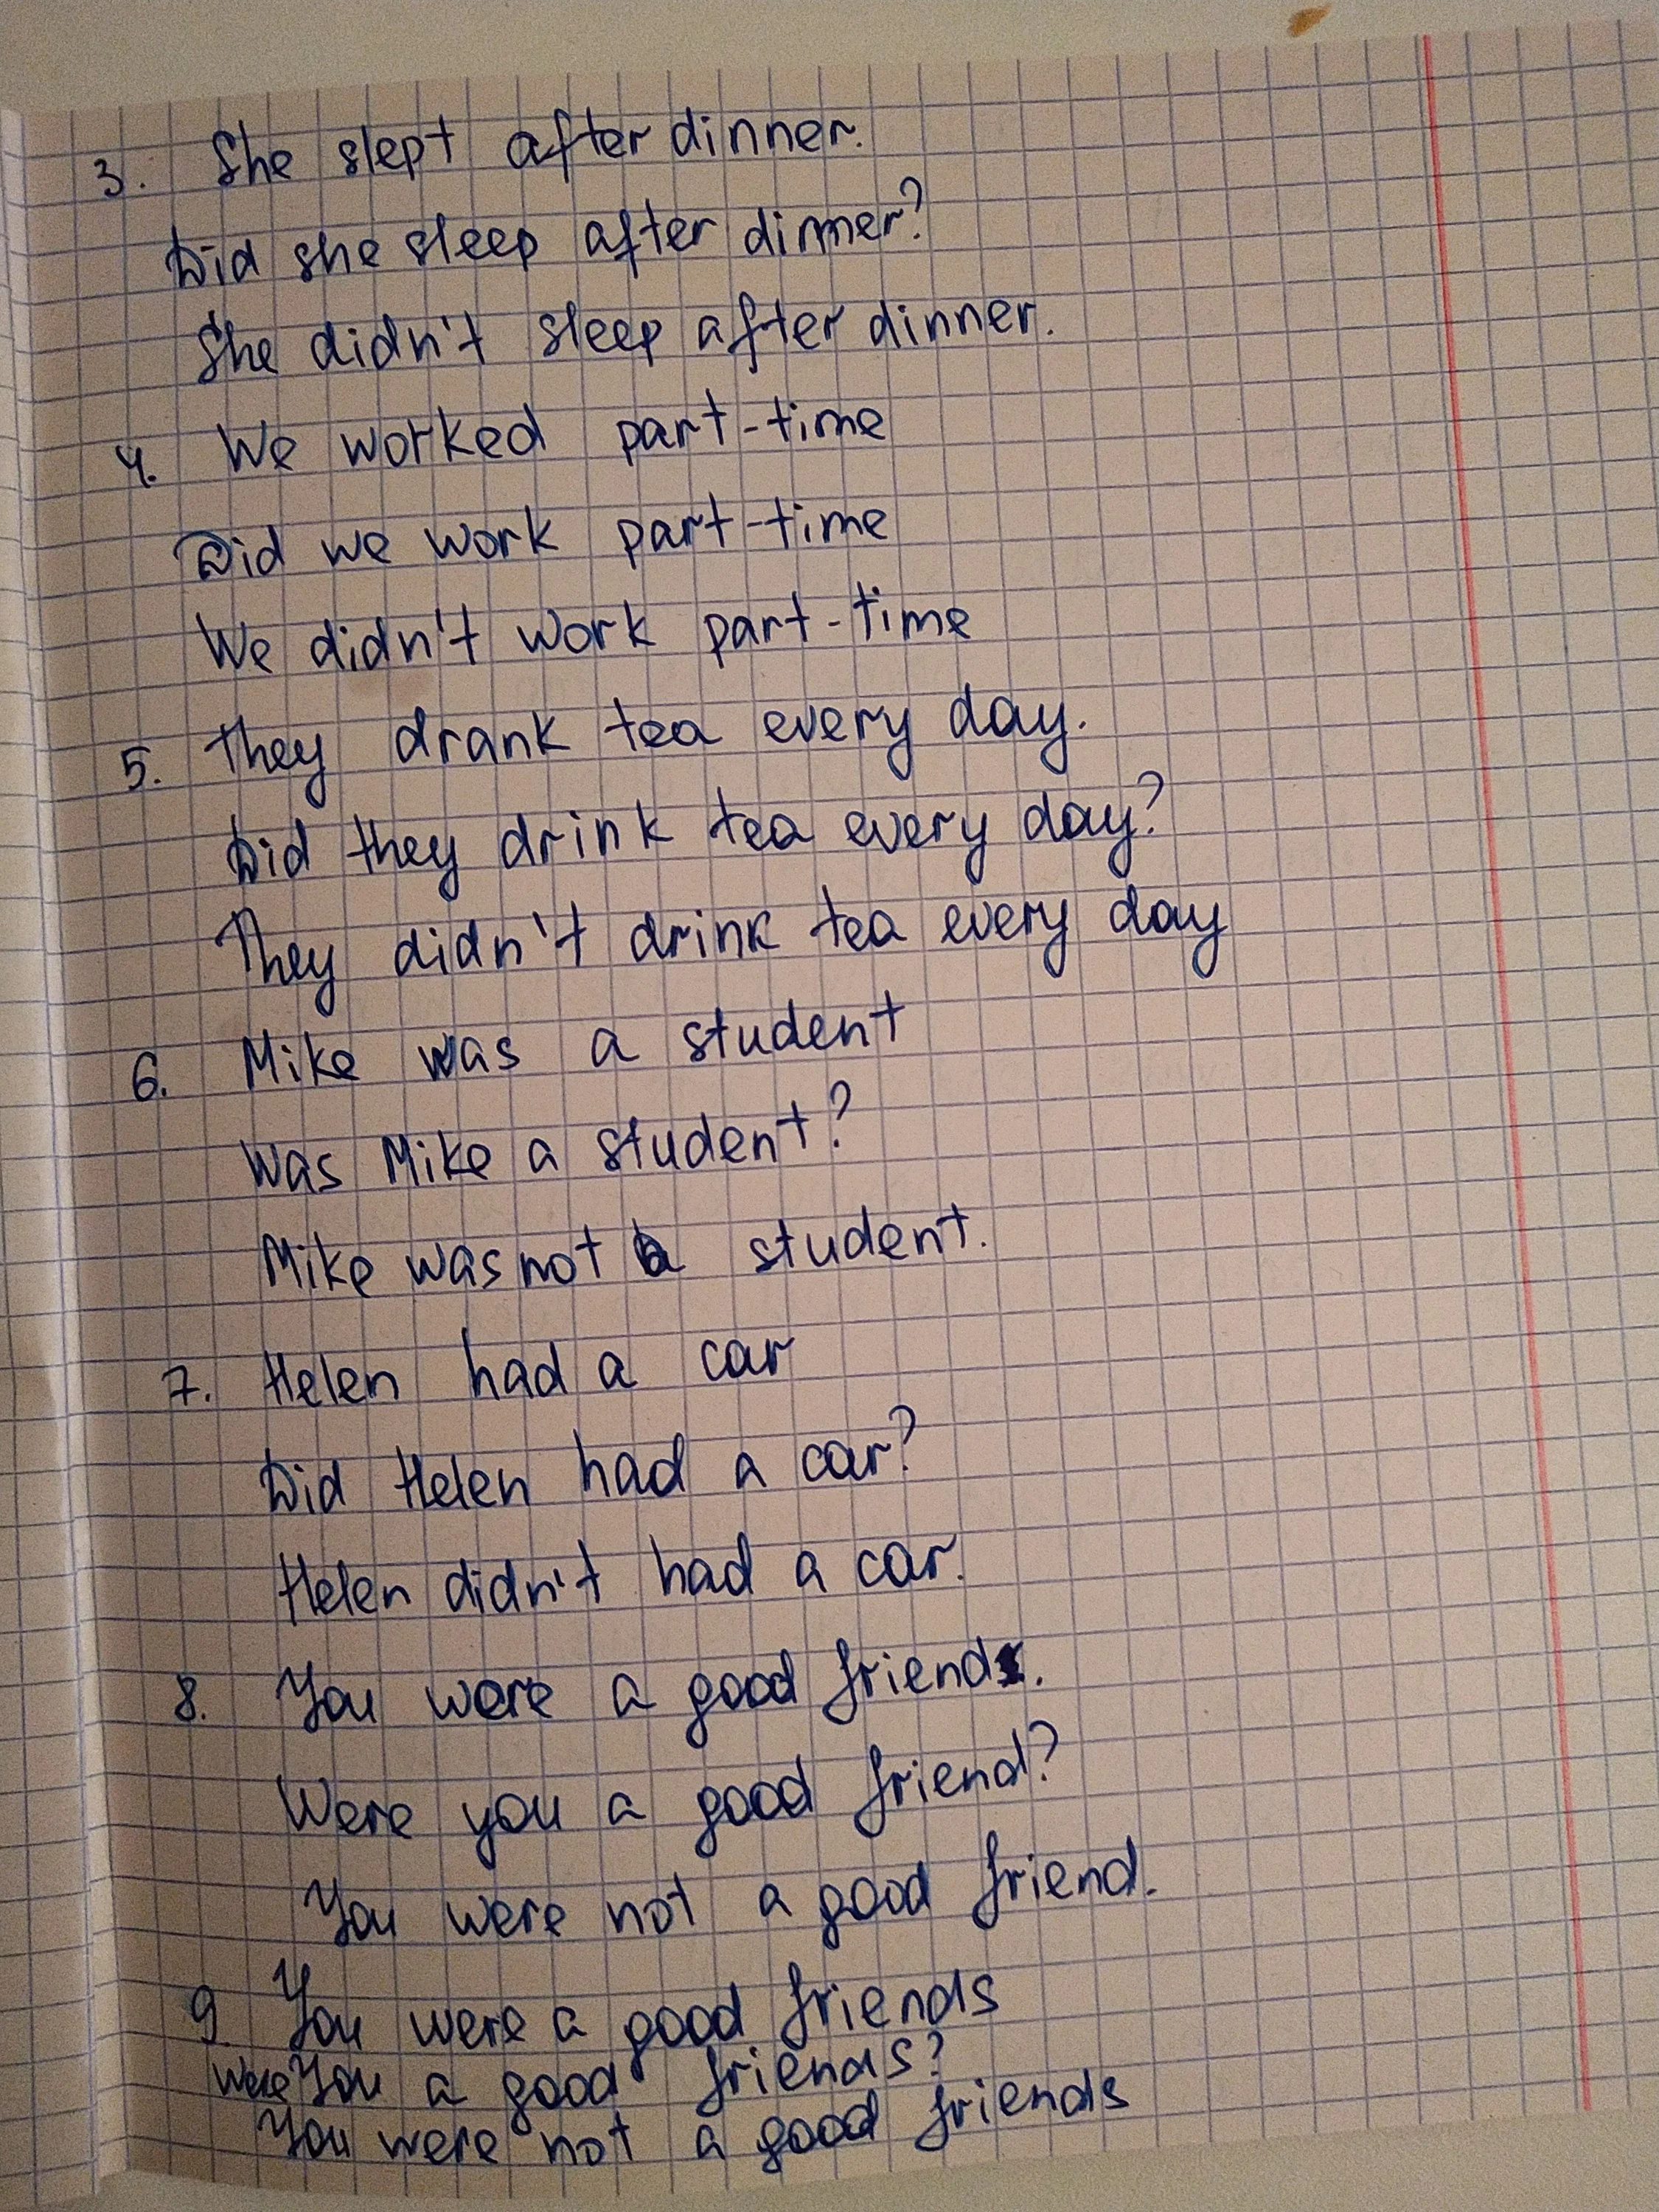 3. She slept after dinner.
Did she sleep after dinner?
She didn't sleep after dinner.
4. We worked part-time
Did we work part-time
We didn't work part-time
5. They drank tea every day.
Did they drink tea every day?
They didn't drink tea every day
6. Mike was a student
Was Mike a student?
Mike was not a student.
7. Helen had a car
Did Helen had a car?
Helen didn't had a car.
8. You were a good friend.
Were you a good friend?
You were not a good friend.
9 You were a good friends
Were You a good friends?
You were not a good friends